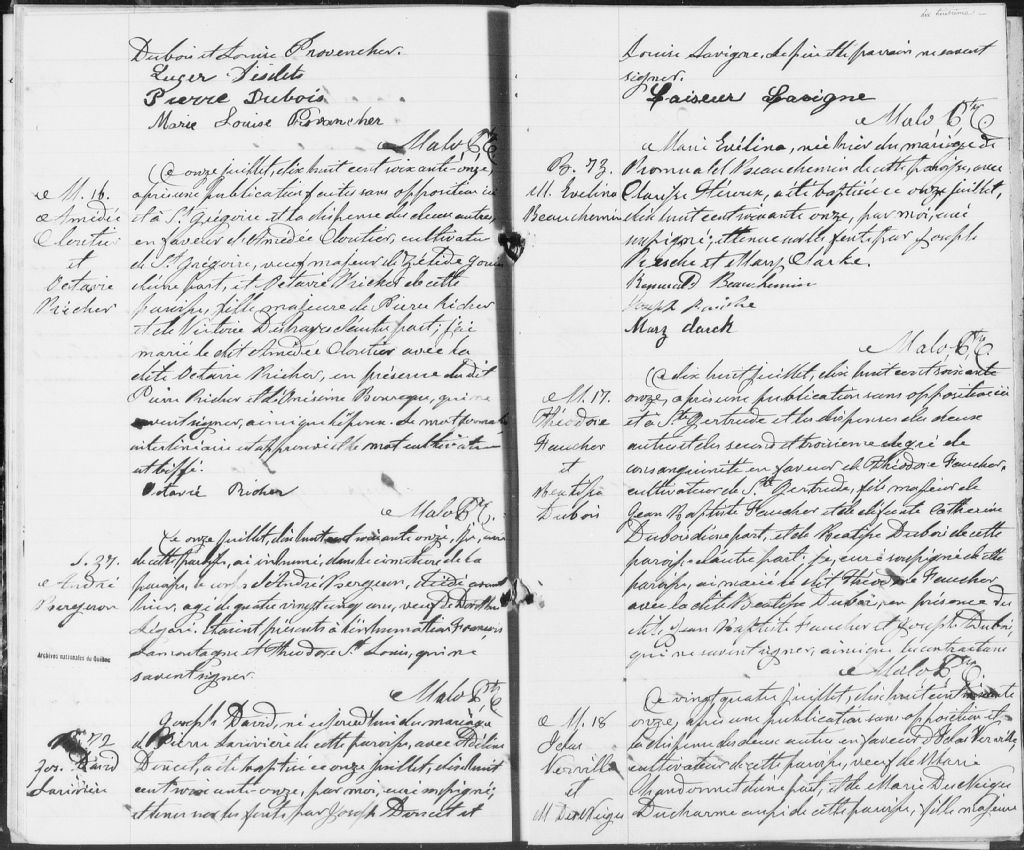 Dubois et Louise Provencher.
Luger Désilets
Pierre Dubois
Marie Louise Provancher
Malo Ptre
M. 16.
Amédée
Cloutier
et
Octavie
Richer
Ce onze juillet, dix huit cent soixante-onze,
après une publication faite sans opposition ici
et à St Grégoire et la dispense des deux autres,
en faveur d'Amédée Cloutier, cultivateur
de St Grégoire, veuf majeur de Zélide
d'une part, et Octavie Richer de cette
paroisse, fille majeure de Pierre Richer
et de Victoire d'autre part; j'ai
marié le dit Amédée Cloutier avec la
dite Octavie Richer, en présence du dit
Pierre Richer et d'Onésime Bourque, qui ne
savent signer, ainsi que l'époux. Le mot
interlinéaire est approuvé et le mot cultivateur
est biffé.
Octavié Richer
Malo Ptre.
S. 27.
André
Bergeron
Ce onze juillet, dix huit cent soixante onze, je, curé
de cette paroisse, ai inhumé, dans le cimetière de la
paroisse, le corps d'André Bergeron, décédé avant
hier, agé de quatre vingt cinq ans, veuf de Dorothée
Légaré. Etaient présents à l'inhumation François
Lamontagne et Théodore St Louis, qui ne
savent signer.
Malo Ptre
Archives nationales du Québec
72
Jos. David
Larivière
Joseph David, né aujourd'hui du mariage
de Pierre Larivière de cette paroisse, avec Adéline
Doucet, a été baptisé ce onze juillet, dix huit
cent soixante-onze, par moi, curé soussigné,
et tenu sur les fonts par Joseph Doucet et
Louise Lavigne. Le père et le parrain ne savent
signer.
Laiseur Lavigne
Malo Ptre
B. 73.
M. Evelina
Beauchemin
Marie Evélina, née hier du mariage de
Romuald Beauchemin de cette paroisse, avec
Clarisse Héroux, a été baptisée ce onze juillet,
dix huit cent soixante onze, par moi, curé
soussigné; et tenue sur les fonts par Joseph
Persche et Mary Clarke.
Romuald Beauchemin
Joseph
Mary clarck
Malo, Ptre
M. 17.
Théodore
Faucher
et
Béatisse
Dubois
Ce dix huit juillet, dix huit cent soixante
onze, après une publication sans opposition ici
et à Ste Gertrude et les dispenses des deux
autres et du second et troisième degré de
consanguinité en faveur de Théodore Faucher,
cultivateur de Ste Gertrude, fils majeur de
Jean Baptiste Faucher et de défunte Catherine
Dubois d'une part, et de Béatisse Dubois de cette
paroisse d'autre part, je, curé soussigné de cette
paroisse, ai marié le dit Théodore Faucher
avec la dite Béatisse Dubois, en présence du
dit Jean Baptiste Faucher et Joseph Dubois,
qui ne savent signer, ainsi que les contractants
Malo Ptre
M. 18
Jelas
Verville
et
M DesNeiges
Ce vingt quatre juillet, dix huit cent soixante
onze, après une publication sans opposition et
la dispense des deux autres en faveur de Jelas Verville
cultivateur de cette paroisse, veuf de Marie
Chardonnet d'une part, et de Marie DesNeiges
Ducharme aussi de cette paroisse, fille majeure